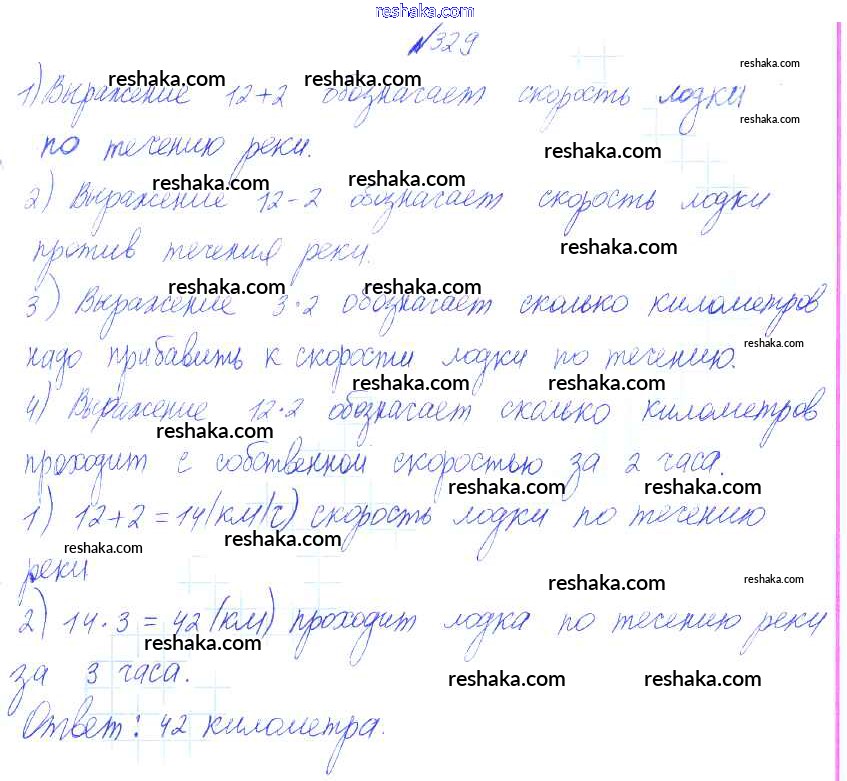 reshaka.com
№329
reshaka.com reshaka.com reshaka.com
1) Выражение 12+2 обозначает скорость лодки
reshaka.com
по течению реки.
reshaka.com
reshaka.com reshaka.com
2) Выражение 12-2 обозначает скорость лодки
против течения реки.
reshaka.com
reshaka.com reshaka.com
3) Выражение 3·2 обозначает сколько километров
reshaka.com
надо прибавить к скорости лодки по течению.
reshaka.com reshaka.com
4) Выражение 12·2 обозначает сколько километров
reshaka.com
проходит с собственной скоростью за 2 часа.
reshaka.com reshaka.com
1) 12+2=14(км/ч) скорость лодки по течению
reshaka.com reshaka.com
реки
reshaka.com reshaka.com
2) 14·3=42(км) проходит лодка по течению реки
reshaka.com
за 3 часа.
reshaka.com reshaka.com
Ответ: 42 километра.